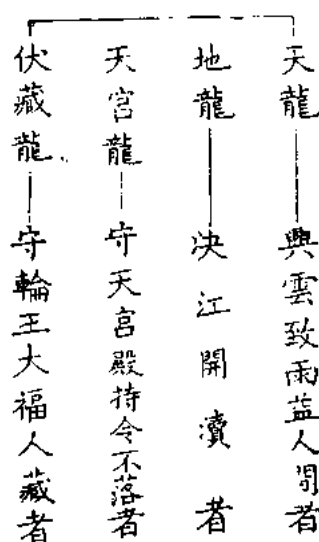 天龍——興雲致雨益人間者
地龍——決江開瀆者
天宮龍——守天宮殿持令不落者
伏藏龍——守輪王大福人藏者